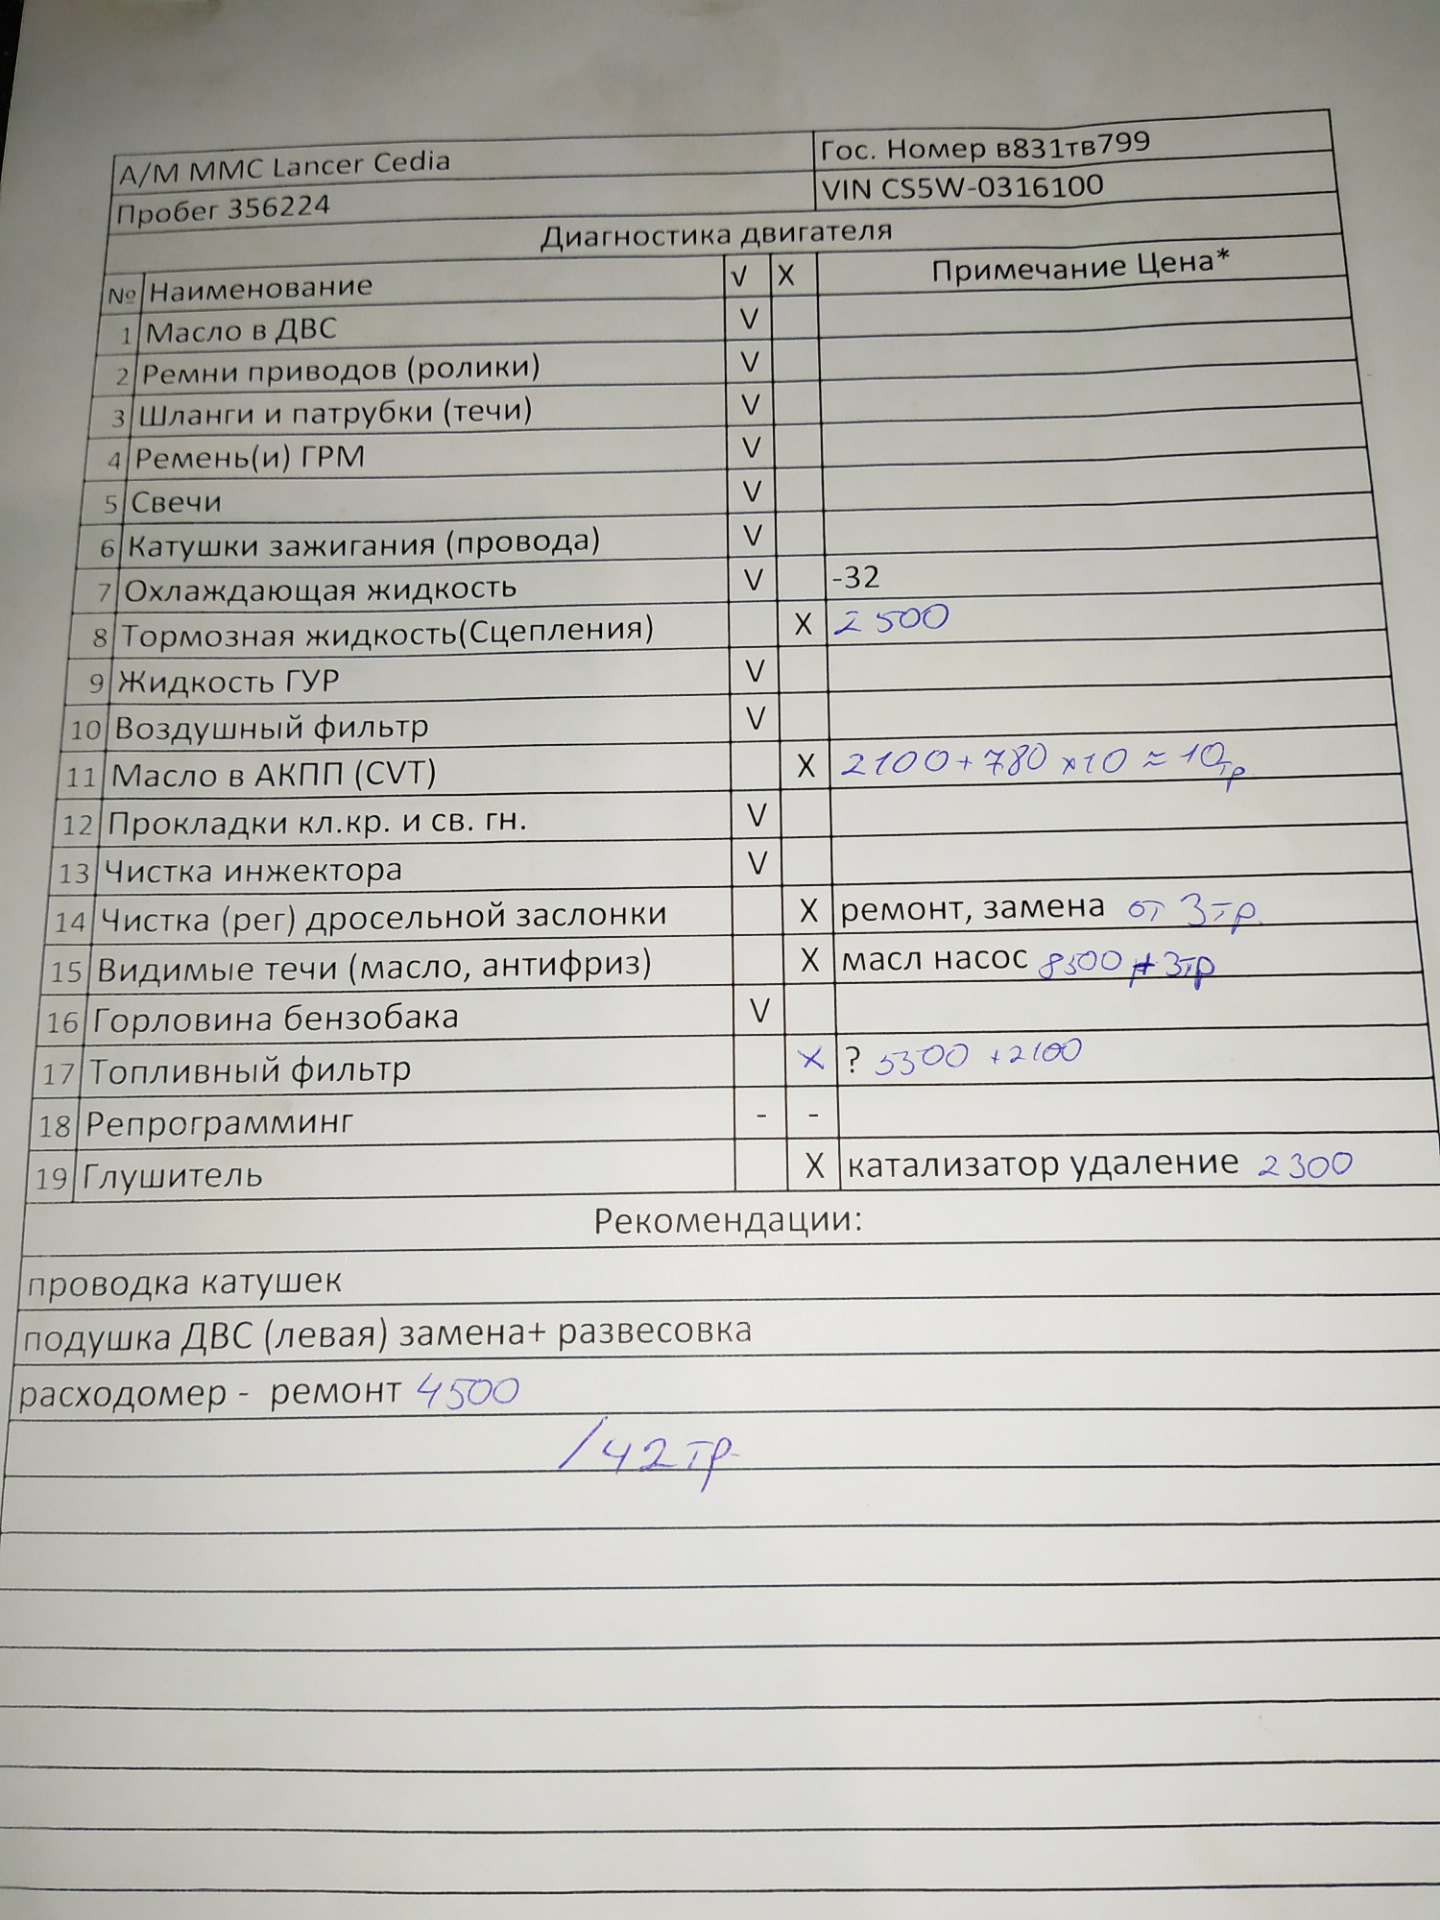 А/М ММС Lancer Cedia Гос. Номер в831тв799
Пробег 356224 VIN CS5W-0316100
Диагностика двигателя
№ Наименование √ X Примечание Цена*
1 Масло в ДВС V
2 Ремни приводов (ролики) V
3 Шланги и патрубки (течи) V
4 Ремень(и) ГРМ V
5 Свечи V
6 Катушки зажигания (провода) V
7 Охлаждающая жидкость V -32
8 Тормозная жидкость(Сцепления) X 2500
9 Жидкость ГУР V
10 Воздушный фильтр V
11 Масло в АКПП (CVT) X 2100+780 x10 ≈ 10тр
12 Прокладки кл.кр. и св. гн. V
13 Чистка инжектора V
14 Чистка (рег) дросельной заслонки X ремонт, замена от 3тр.
15 Видимые течи (масло, антифриз) X масл насос 8500 + 3тр
16 Горловина бензобака V
17 Топливный фильтр X ? 5300 +2100
18 Репрограмминг - -
19 Глушитель X катализатор удаление 2300
Рекомендации:
проводка катушек
подушка ДВС (левая) замена+ развесовка
расходомер - ремонт 4500
/42тр